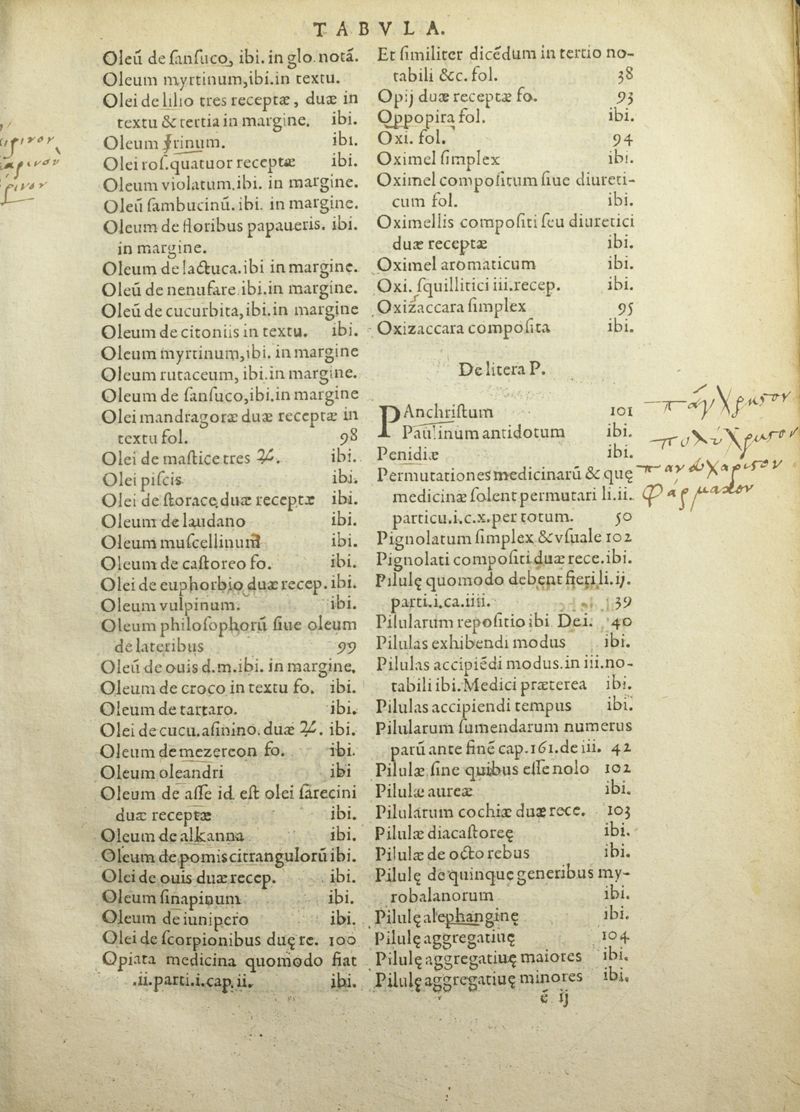 TABVLA.
Oleū de ſanſuco, ibi. in glo. notā.
Oleum myrtinum, ibi. in textu.
Olei de lilio tres receptæ, duæ in
textu & tertia in margine. ibi.
Oleum Irinum. ibi.
Olei roſ. quatuor receptæ ibi.
Oleum violatum. ibi. in margine.
Oleū ſambucinū. ibi. in margine.
Oleum de floribus papaueris. ibi.
in margine.
Oleum de lactuca. ibi in margine.
Oleū de nenufare ibi. in margine.
Oleū de cucurbita, ibi. in margine
Oleum de citoniis in textu. ibi.
Oleum myrtinum, ibi. in margine
Oleum rutaceum, ibi. in margine.
Oleum de ſanſuco, ibi. in margine
Olei mandragoræ duæ receptæ in
textu fol. 98
Olei de maſtice tres ℞. ibi.
Olei piſcis ibi.
Olei de ſtorace, duæ receptæ ibi.
Oleum de laudano ibi.
Oleum muſcellinum ibi.
Oleum de caſtoreo fo. ibi.
Olei de euphorbio duæ recep. ibi.
Oleum vulpinum. ibi.
Oleum philoſophorū ſiue oleum
de lateribus 99
Oleū de ouis d.m. ibi. in margine.
Oleum de croco in textu fo. ibi.
Oleum de tartaro. ibi.
Olei de cucu. aſinino. duæ ℞. ibi.
Oleum de mezereon fo. ibi.
Oleum oleandri ibi
Oleum de aſſe id eſt olei ſarecini
duæ receptæ ibi.
Oleum de alkanna ibi.
Oleum de pomis citrangulorū ibi.
Olei de ouis duæ recep. ibi.
Oleum ſinapinum ibi.
Oleum de iunipero ibi.
Olei de ſcorpionibus duę re. 100
Opiata medicina quomodo fiat
.ii. parti. i. cap. ii. ibi.
Et ſimiliter dicēdum in tertio no-
tabili &c. fol. 38
Opij duæ receptæ fo. 93
Oppopira fol. ibi.
Oxi. fol. 94
Oximel ſimplex ibi.
Oximel compoſitum ſiue diureti-
cum fol. ibi.
Oximellis compoſiti ſeu diuretici
duæ receptæ ibi.
Oximel aromaticum ibi.
Oxi. ſquillitici iii. recep. ibi.
Oxizaccara ſimplex 95
Oxizaccara compoſita ibi.
De litera P.
PAnchriſtum 101
Paulinum antidotum ibi.
Penidiæ ibi.
Permutationes medicinarū & quę
medicinæ ſolent permutari li. ii.
particu. i. c. x. per totum. 50
Pignolatum ſimplex & vſuale 102
Pignolati compoſiti duæ rece. ibi.
Pilulę quomodo debent fieri li. ij.
parti. i. ca. iiii. 39
Pilularum repoſitio ibi Dei. 40
Pilulas exhibendi modus ibi.
Pilulas accipiēdi modus. in iii. no-
tabili ibi. Medici præterea ibi.
Pilulas accipiendi tempus ibi.
Pilularum ſumendarum numerus
parū ante finē cap. 161. de iii. 42
Pilulæ ſine quibus eſſe nolo 102
Pilulæ aureæ ibi.
Pilularum cochiæ duæ rece. 103
Pilulæ diacaſtoreę ibi.
Pilulæ de octo rebus ibi.
Pilulę de quinque generibus my-
robalanorum ibi.
Pilulę alephanginę ibi.
Pilulę aggregatiuę 104
Pilulę aggregatiuę maiores ibi.
Pilulę aggregatiuę minores ibi.
é ij